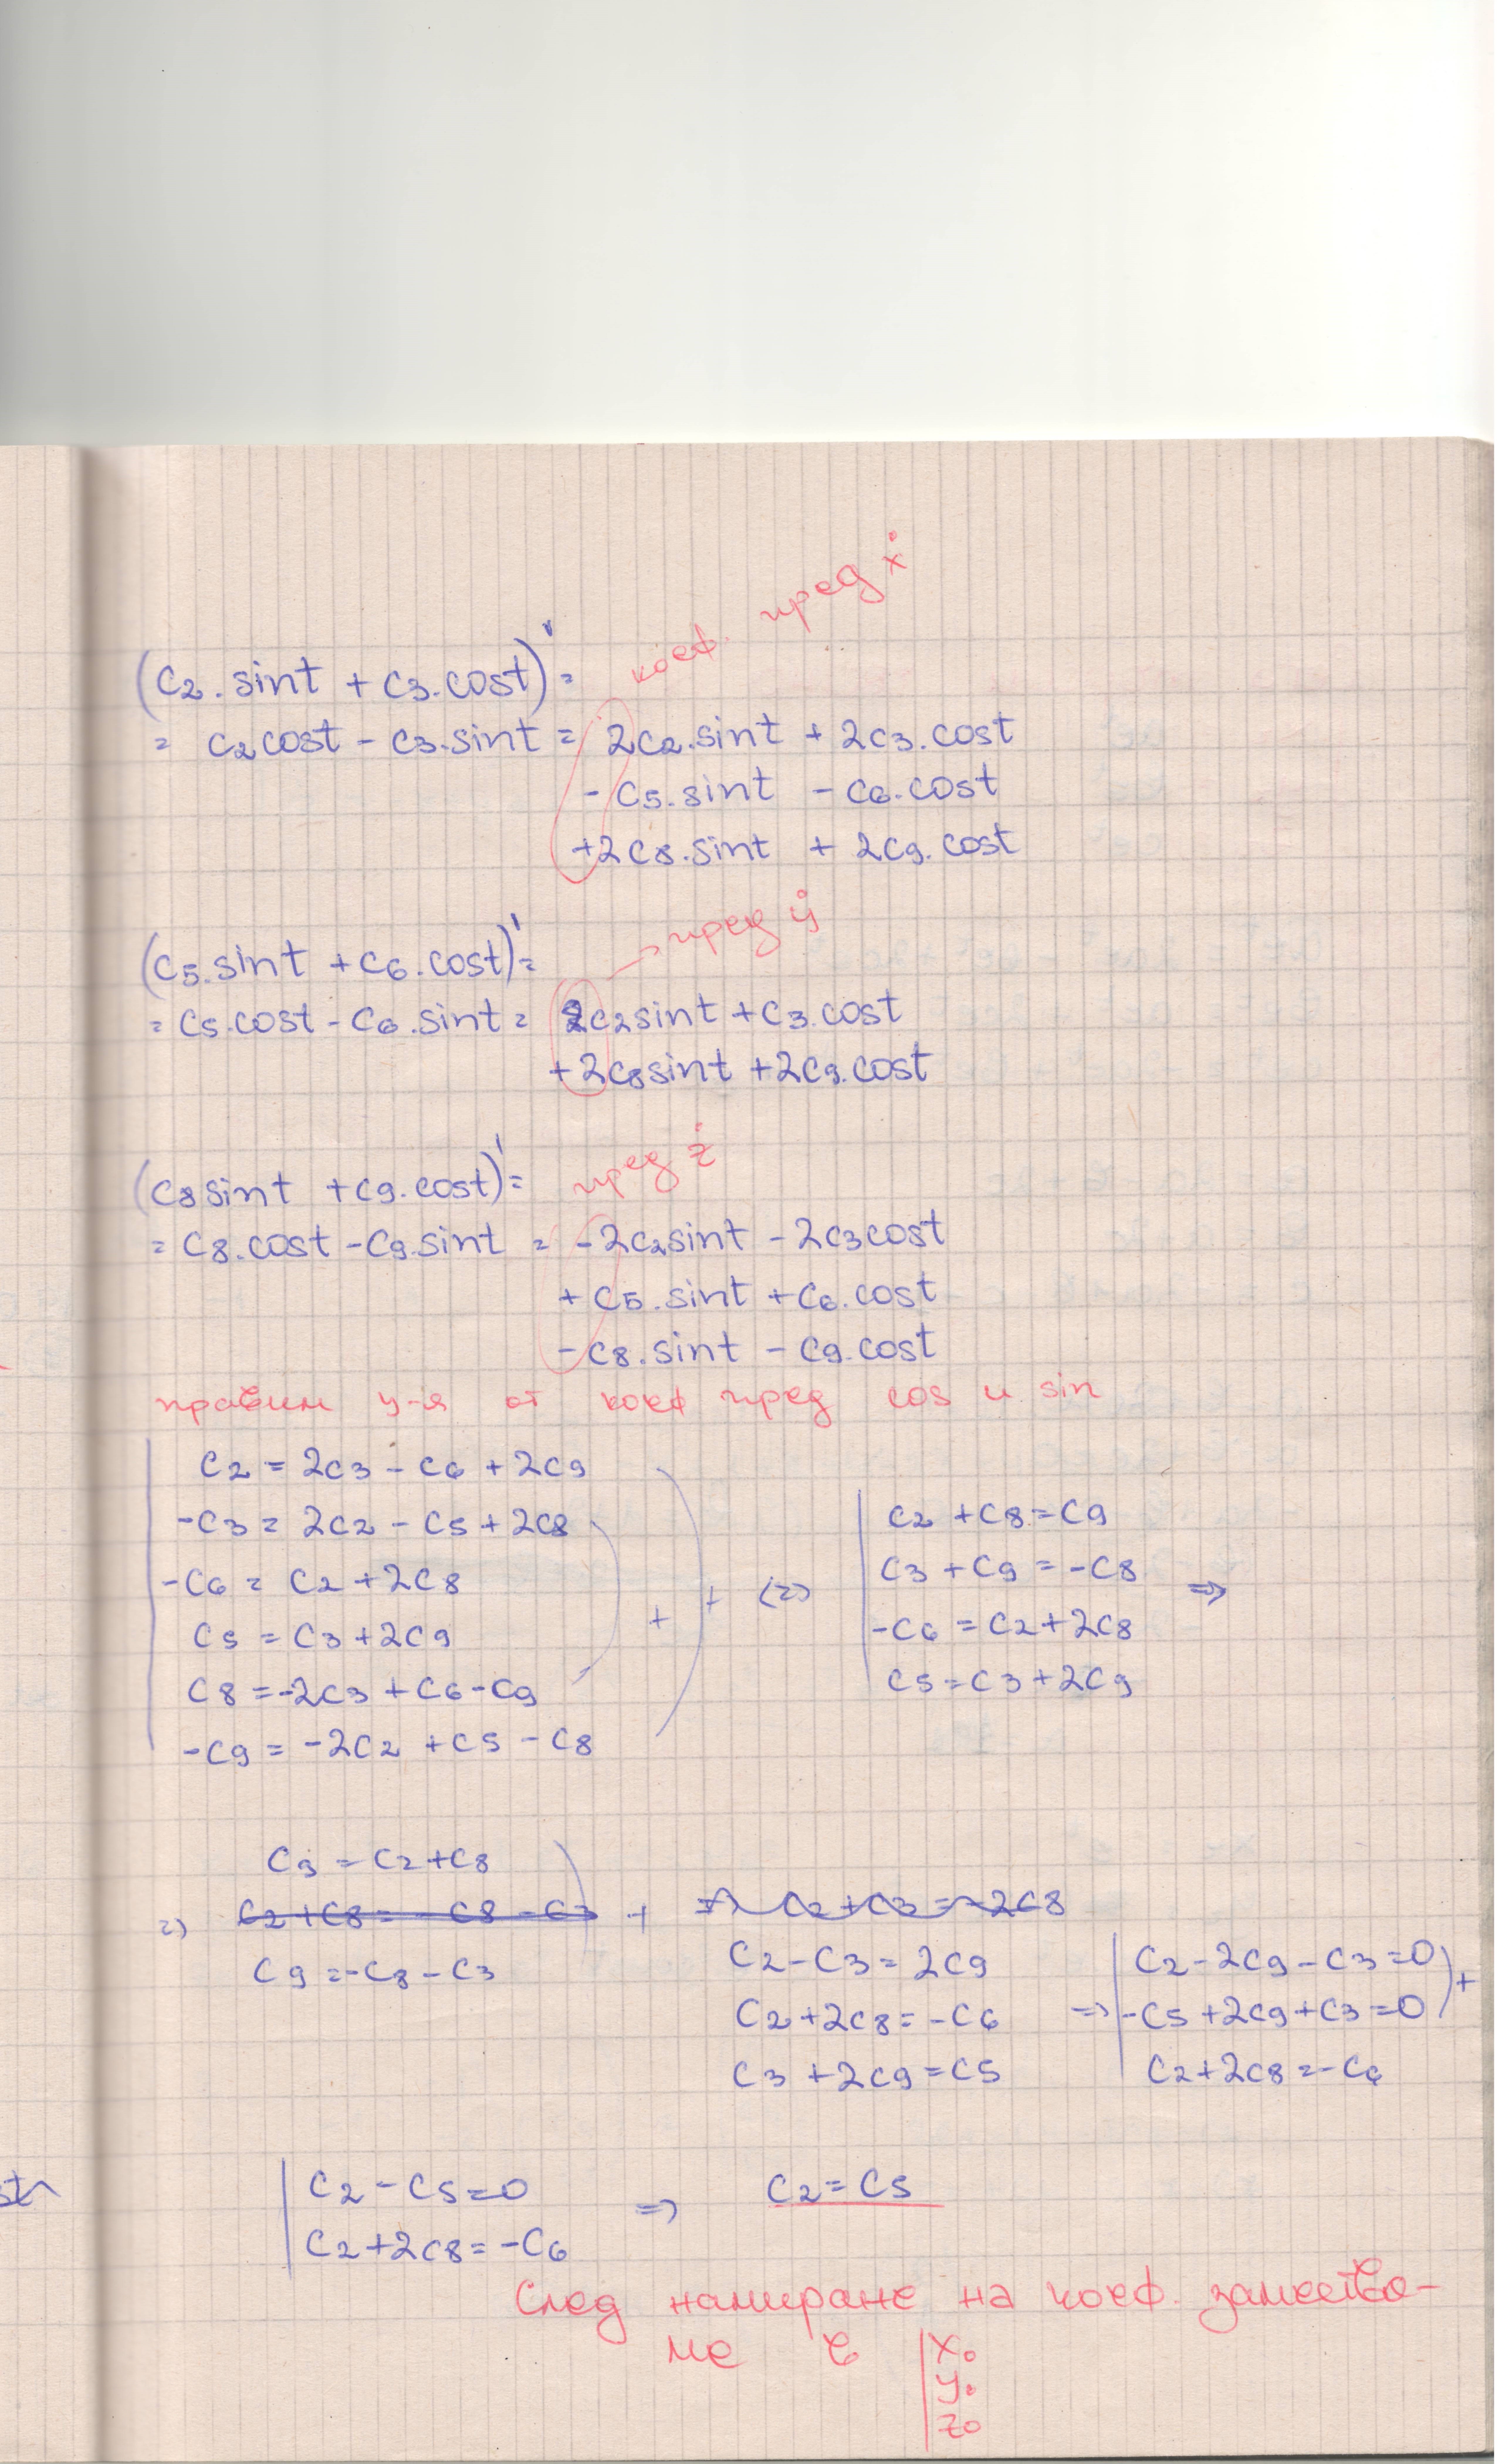 коеф. пред ẋ
(c2.sint + c3.cost)' =
= c2cost - c3.sint = 2c2.sint + 2c3.cost
- c5.sint - c6.cost
+2c8.sint + 2c9.cost
→ пред ẏ
(c5.sint + c6.cost)' =
= c5.cost - c6.sint = c2sint + c3.cost
+2c8sint + 2c9.cost
пред ż
(c8sint + c9.cost)' =
= c8.cost - c9.sint = -2c2sint - 2c3cost
+ c5.sint + c6.cost
- c8.sint - c9.cost
правим у-я от коеф пред cos и sin
c2 = 2c3 - c6 + 2c9
-c3 = 2c2 - c5 + 2c8
-c6 = c2 + 2c8
c5 = c3 + 2c9
c8 = -2c3 + c6 - c9
-c9 = -2c2 + c5 - c8
+ + (=)
c2 + c8 = c9
c3 + c9 = -c8 =>
-c6 = c2 + 2c8
c5 = c3 + 2c9
c9 = c2 + c8
=) c2 + c8 = -c8 - c3 + => c2 + c3 = -2c8
c9 = -c8 - c3
c2 - c3 = 2c9
c2 + 2c8 = -c6
c3 + 2c9 = c5
=> c2 - 2c9 - c3 = 0
-c5 + 2c9 + c3 = 0 +
c2 + 2c8 = -c6
c2 - c5 = 0 => c2 = c5
c2 + 2c8 = -c6
След намиране на коеф. замества-
ме в x0
y0
z0